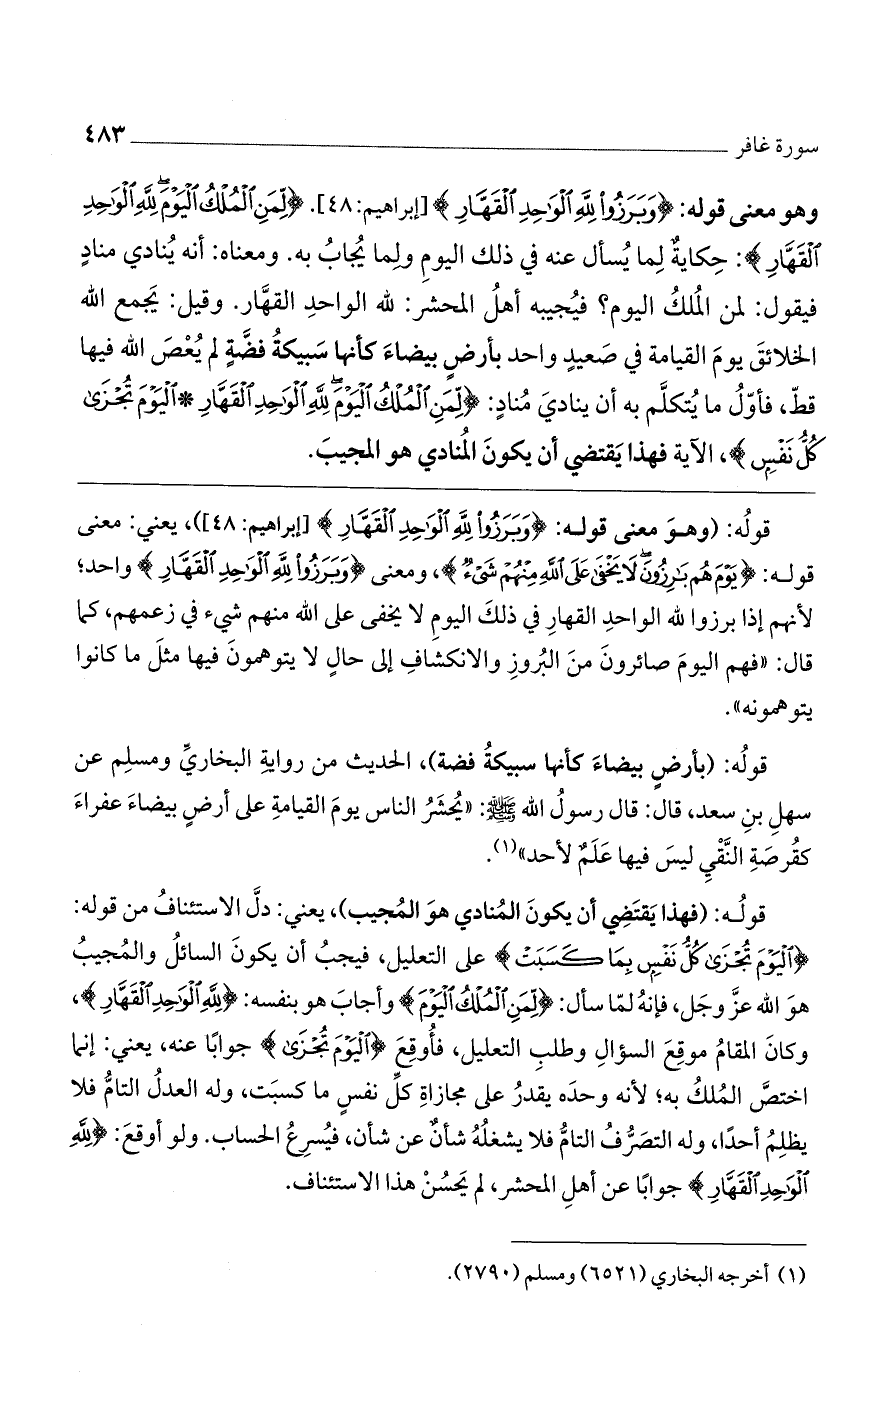 سورة غافر ٤٨٣
وهو معنى قوله: ﴿وَبَرَزُواْ لِلَّهِ ٱلْوَٰحِدِ ٱلْقَهَّارِ﴾ [إبراهيم: ٤٨]. ﴿لِّمَنِ ٱلْمُلْكُ ٱلْيَوْمَ ۖ لِلَّهِ ٱلْوَٰحِدِ
ٱلْقَهَّارِ﴾: حِكايةٌ لِما يُسأل عنه في ذلك اليومِ ولِما يُجابُ به. ومعناه: أنه يُنادي منادٍ
فيقول: لمن المُلكُ اليوم؟ فيُجيبه أهلُ المحشر: لله الواحدِ القهَّار. وقيل: يَجمع الله
الخلائقَ يومَ القيامة في صَعيدٍ واحد بأرضٍ بيضاءَ كأنها سَبيكةُ فضَّةٍ لم يُعْصَ الله فيها
قطّ، فأوّلُ ما يُتكلَّم به أن يناديَ مُنادٍ: ﴿لِّمَنِ ٱلْمُلْكُ ٱلْيَوْمَ ۖ لِلَّهِ ٱلْوَٰحِدِ ٱلْقَهَّارِ * ٱلْيَوْمَ تُجْزَىٰ
كُلُّ نَفْسٍ﴾، الآية فهذا يَقتضي أن يكونَ المُنادي هو المجيبَ.
قولُه: (وهوَ معنى قوله: ﴿وَبَرَزُواْ لِلَّهِ ٱلْوَٰحِدِ ٱلْقَهَّارِ﴾ [إبراهيم: ٤٨])، يعني: معنى
قوله: ﴿يَوْمَ هُم بَٰرِزُونَ ۖ لَا يَخْفَىٰ عَلَى ٱللَّهِ مِنْهُمْ شَىْءٌ﴾، ومعنى ﴿وَبَرَزُواْ لِلَّهِ ٱلْوَٰحِدِ ٱلْقَهَّارِ﴾ واحد؛
لأنهم إذا برزوا لله الواحدِ القهارِ في ذلكَ اليومِ لا يخفى على الله منهم شيء في زعمهم، كما
قال: «فهم اليومَ صائرونَ منَ البُروزِ والانكشافِ إلى حالٍ لا يتوهمونَ فيها مثلَ ما كانوا
يتوهمونه».
قولُه: (بأرضٍ بيضاءَ كأنها سبيكةُ فضة)، الحديث من روايةِ البخاريِّ ومسلِم عن
سهلِ بنِ سعد، قال: قال رسولُ الله ﷺ: «يُحشَرُ الناس يومَ القيامةِ على أرضٍ بيضاءَ عفراءَ
كقُرصَةِ النَّقْيِ ليسَ فيها عَلَمٌ لأحد»(١).
قولُه: (فهذا يَقتَضِي أن يكونَ المُنادي هوَ المُجيب)، يعني: دلَّ الاستئنافُ من قوله:
﴿ٱلْيَوْمَ تُجْزَىٰ كُلُّ نَفْسٍ بِمَا كَسَبَتْ﴾ على التعليل، فيجبُ أن يكونَ السائلُ والمُجيبُ
هوَ الله عزَّ وجَل، فإنهُ لمّا سأل: ﴿لِّمَنِ ٱلْمُلْكُ ٱلْيَوْمَ﴾ وأجابَ هو بنفسه: ﴿لِلَّهِ ٱلْوَٰحِدِ ٱلْقَهَّارِ﴾،
وكانَ المقامُ موقعَ السؤالِ وطلبِ التعليل، فأُوقِعَ ﴿ٱلْيَوْمَ تُجْزَىٰ﴾ جوابًا عنه، يعني: إنما
اختصَّ المُلكُ به؛ لأنه وحدَه يقدرُ على مجازاةِ كلِّ نفسٍ ما كسبَت، وله العدلُ التامُّ فلا
يظلِمُ أحدًا، وله التصَرُّفُ التامُّ فلا يشغلُهُ شأنٌ عن شأن، فيُسرِعُ الحساب. ولو أوقعَ: ﴿لِلَّهِ
ٱلْوَٰحِدِ ٱلْقَهَّارِ﴾ جوابًا عن أهلِ المحشر، لم يَحسُنْ هذا الاستئناف.
(١) أخرجه البخاري (٦٥٢١) ومسلم (٢٧٩٠).